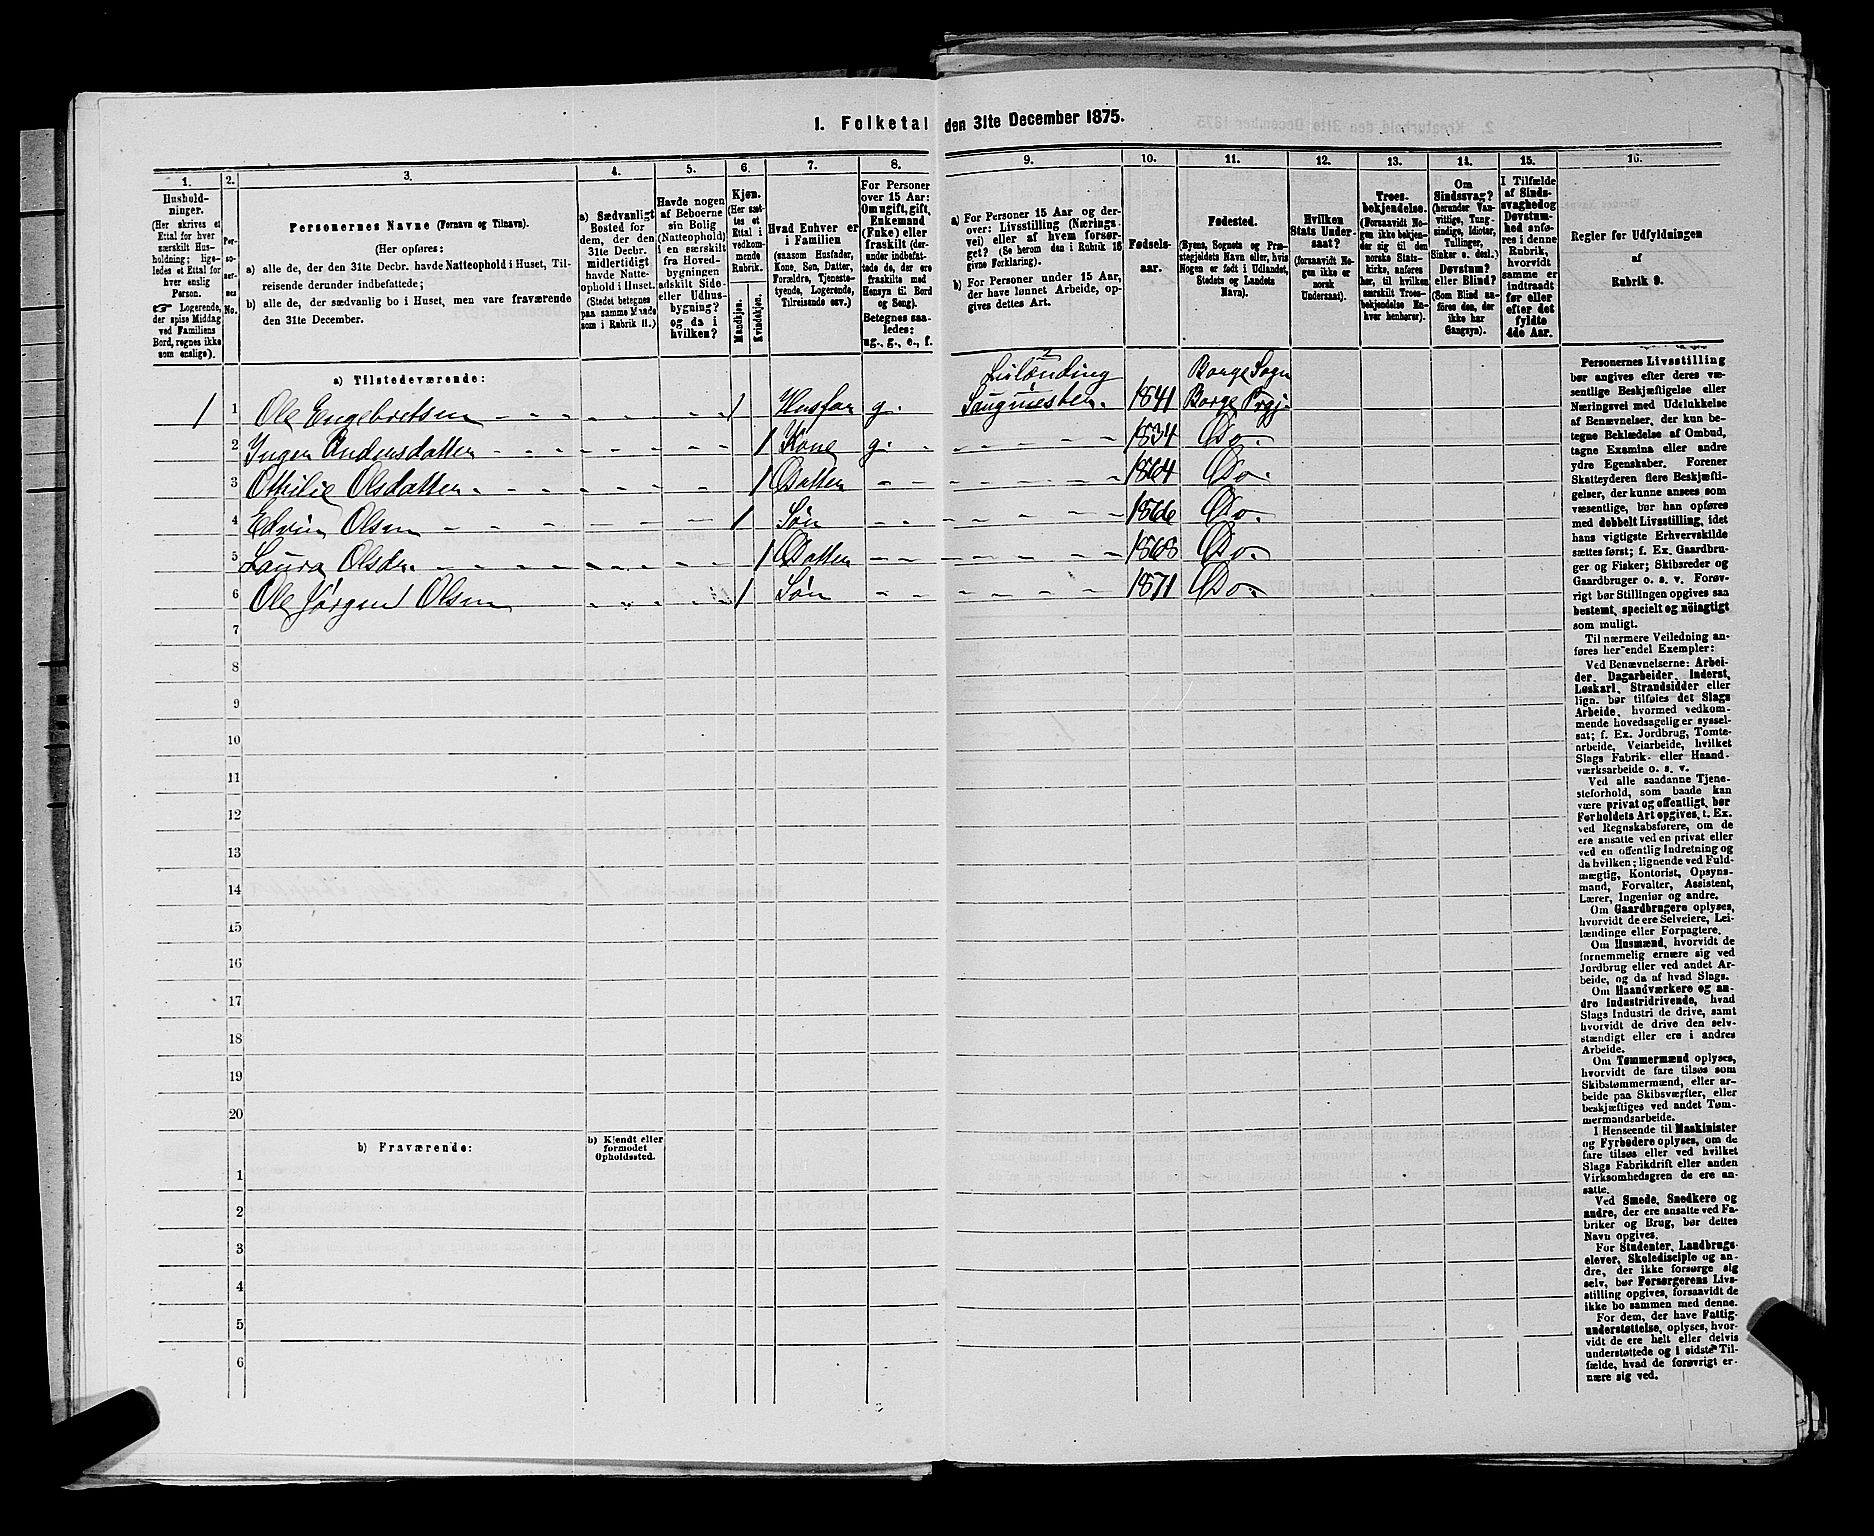 1. Folketal den 31te December 1875.
1.
2.
3.
4.
5.
6.
7.
8.
9.
10.
11.
12.
13.
14.
15.
16.
Hushold-
ninger.
(Her skrives et
Ettal for hver
særskilt Hus-
holdning; lige-
ledes et Ettal for
hver enslig
Person.
☞ Logerende,
der spise Middag
ved Familiens
Bord, regnes ikke
som enslige).
Per-
so-
ner-
nes
No.
Personernes Navne (Fornavn og Tilnavn).
(Her opføres:
a) alle de, der den 31te Decbr. havde Natteophold i Huset, Til-
reisende derunder indbefattede;
b) alle de, der sædvanlig bo i Huset, men vare fraværende
den 31te December.
a) Sædvanligt
Bosted for
dem, der den
31te Decbr.
midlertidigt
havde Natte-
ophold i Huset.
(Stedet betegnes
paa samme Maade
som i Rubrik 11.)
Havde nogen
af Beboerne
sin Bolig
(Natteophold)
i en særskilt
fra Hoved-
bygningen
adskilt Side-
eller Udhus-
bygning?
og da i
hvilken?
Kjøn.
(Her sæt-
tes et
Ettal i
vedkom-
mende
Rubrik.
Mandkjøn.
Kvindekjøn.
Hvad Enhver er
i Familien
(saasom Husfader,
Kone, Søn, Datter,
Forældre, Tjeneste-
tyende, Logerende,
Tilreisende osv.)
For Personer
over 15 Aar:
Om ugift, gift,
Enkemand
(Enke) eller
fraskilt (der-
under indbefat-
tede de, der ere
fraskilte med
Hensyn til Bord
og Seng).
Betegnes saa-
ledes:
ug., g., e., f.
a) For Personer 15 Aar og der-
over: Livsstilling (Nærings-
vei) eller af hvem forsør-
get? (Se herom den i Rubrik 16
givne Forklaring).
b) For Personer under 15 Aar,
der have lønnet Arbeide, op-
gives dettes Art.
Fødsels-
aar.
Fødested.
(Byens, Sognets og Præ-
stegjeldets Navn eller, hvis
Nogen er født i Udlandet,
Stedets og Landets
Navn).
Hvilken
Stats Under-
saat?
(forsaavidt No-
gen ikke er
norsk
Undersaat).
Troes-
bekjendelse.
(Forsaavidt No-
gen ikke bekjen-
der sig til den
norske Stats-
kirke, anføres
her, til hvilken
særskilt Troes-
bekjendelse En-
hver henhører).
Om
Sindssvag?
(herunder Van-
vittige, Tung-
sindige, Idioter,
Tullinger,
Sinker o. desl.)
Døvstum?
eller Blind?
(Som Blind an-
føres den, der
ikke har
Gangsyn).
I Tilfælde
af Sinds-
svaghed og
Døvstum-
hed anfø-
res i denne
Rubrik,
hvorvidt
samme er
indtraadt
før eller
efter det
fyldte
4de Aar.
Regler for Udfyldningen
af
Rubrik 9.
a) Tilstedeværende:
Leilænding Borge Sogn
1 1 Ole Engebretsen 1 Husfar g. Saugmester. 1841 Borge Prgj.
2 Inger Andersdatter 1 Kone g. 1834 Do.
3 Othilie Olsdatter. 1 Datter 1864 Do.
4 Edvin Olsen 1 Søn 1866 Do.
5 Laura Olsdr. 1 Datter 1868 Do.
6 Ole Jørgen Olsen 1 Søn 1871 Do.
7
8
9
10
11
12
13
14
15
16
17
18
19
20
b) Fraværende:
b) Kjendt eller
formodet
Opholdssted.
1
2
3
4
5
6
Personernes Livsstilling
bør angives efter deres væ-
sentlige Beskjæftigelse eller
Næringsvei med Udelukkelse
af Benævnelser, der kun be-
tegne Beklædelse af Ombud,
tagne Examina eller andre
ydre Egenskaber. Forener
Skatteyderen flere Beskjæfti-
gelser, der kunne ansees som
væsentlige, bør han opføres
med dobbelt Livsstilling, idet
hans vigtigste Erhvervskilde
sættes først; f. Ex. Gaardbru-
ger og Fisker; Skibsreder og
Gaardbruger o. s. v. Forøv-
rigt bør Stillingen opgives saa
bestemt, specielt og nöiagtigt
som muligt.
Til nærmere Veiledning an-
føres her endel Exempler:
Ved Benævnelserne: Arbei-
der, Dagarbeider, Inderst,
Løskarl, Strandsidder eller
lign. bør tilføies det Slags
Arbeide, hvormed vedkom-
mende hovedsagelig er syssel-
sat; f. Ex. Jordbrug, Tomte-
arbeide, Veiarbeide, hvilket
Slags Fabrik- eller Haand-
værksarbeide o. s. v.
Ved alle saadanne Tjene-
steforhold, som baade kan
være privat og offentligt, bør
Forholdets Art opgives, t. Ex.
ved Regnskabsførere, om de
ere ansatte ved en privat eller
ved en offentlig Indretning og
da hvilken; lignende ved Fuld-
mægtig, Kontorist, Opsyns-
mand, Forvalter, Assistent,
Lærer, Ingeniør og andre.
Om Gaardbrugere oplyses,
hvorvidt de ere Selveiere, Lei-
lændinge eller Forpagtere.
Om Husmænd, hvorvidt de
fornemmelig ernære sig ved
Jordbrug eller ved andet Ar-
beide, og da af hvad Slags.
Om Haandværkere og an-
dre Industridrivende, hvad
Slags Industri de drive, samt
hvorvidt de drive den selv-
stændigt eller ere i andres
Arbeide.
Om Tømmermænd oplyses,
hvorvidt de fare tilsøs som
Skibstømmermænd, eller ar-
beide paa Skibsværfter, eller
beskjæftiges ved andet Tøm-
mermandsarbeide.
I Henseende til Maskinister
og Fyrbødere oplyses, om de
fare tilsøs eller ved hvilket
Slags Fabrikdrift eller anden
Virksomhedsgren de ere an-
satte.
Ved Smede, Snedkere og
andre, der ere ansatte ved Fa-
briker og Brug, bør dettes
Navn opgives.
For Studenter, Landbrugs-
elever, Skoledisciple og an-
dre, der ikke forsørge sig
selv, bør Forsørgerens Livs-
stilling opgives, forsaavidt de
ikke bo sammen med denne.
For dem, der have Fattig-
understøttelse, oplyses, hvor-
vidt de ere helt eller delvis
understøttede og i sidste Til-
fælde, hvad de forøvrigt er-
nære sig ved.